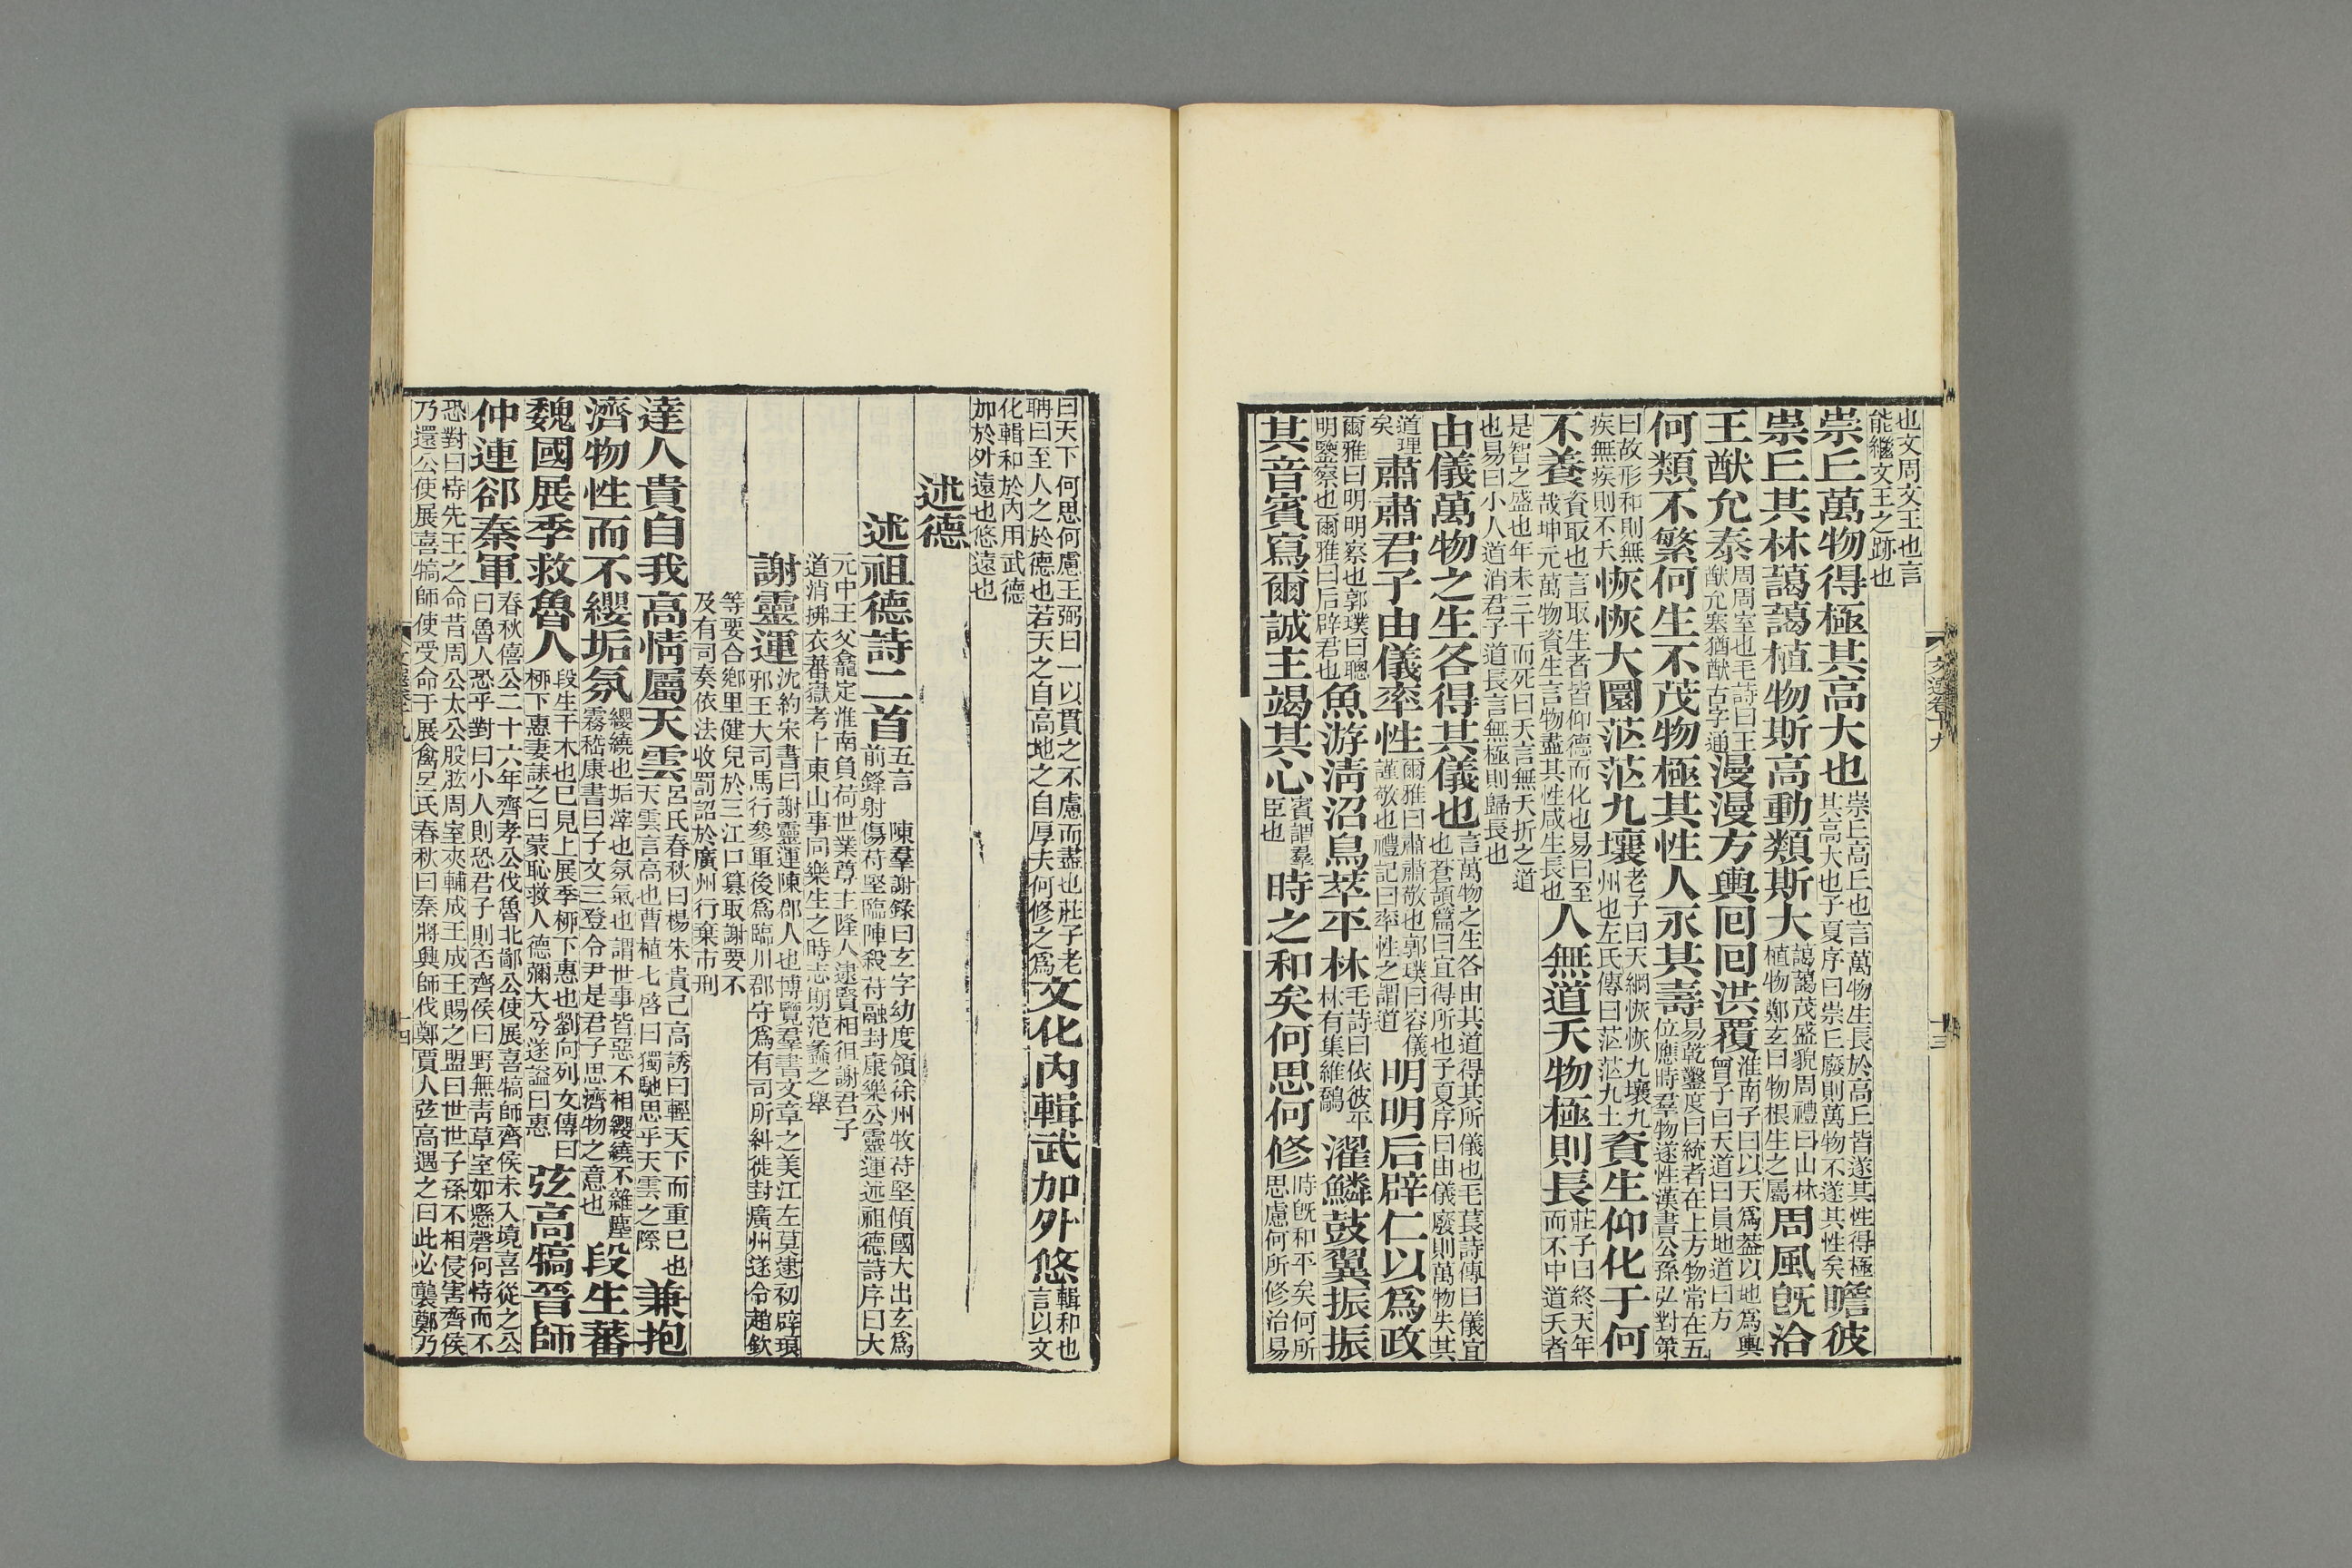 也文周文王也言
能繼文王之跡也
崇丘萬物得極其高大也崇丘高丘也言萬物生長於高丘皆遂其性得極其高大也子夏序曰崇丘廢則萬物不遂其性矣瞻彼
崇丘其林藹藹植物斯高動類斯大藹藹茂盛貌周禮曰山林植物鄭玄曰物根生之屬周風旣洽
王猷允泰周周室也毛詩曰王猷允塞猶猷古字通漫漫方輿回回洪覆淮南子曰以天爲葢以地爲輿曾子曰天道曰員地道曰方
何類不繁何生不茂物極其性人永其壽易乾鑿度曰統者在上方物常在五位應時羣物遂性漢書公孫弘對策
曰故形和則無疾無疾則不夭恢恢大圜茫茫九壤老子曰天網恢恢九壤九州也左氏傳曰茫茫九土資生仰化于何
不養資取也言取生者皆仰德而化也易曰至哉坤元萬物資生言物盡其性咸生長也人無道夭物極則長莊子曰終天年而不中道夭者
是智之盛也年未三十而死曰夭言無夭折之道
也易曰小人道消君子道長言無極則歸長也
由儀萬物之生各得其儀也言萬物之生各由其道得其所儀也毛萇詩傳曰儀宜也蒼頡篇曰宜得所也子夏序曰由儀廢則萬物失其
道理矣肅肅君子由儀率性爾雅曰肅肅敬也郭璞曰容儀謹敬也禮記曰率性之謂道明明后辟仁以爲政
爾雅曰明明察也郭璞曰聰明鑒察也爾雅曰后辟君也魚游淸沼鳥萃平林毛詩曰依彼平林有集維鷮濯鱗鼓翼振振
其音賓寫爾誠主竭其心賓謂羣臣也時之和矣何思何修時旣和平矣何所思慮何所修治易
文選卷十九
十三
曰天下何思何慮王弼曰一以貫之不慮而盡也莊子老聃曰至人之於德也若天之自高地之自厚夫何修之爲文化內輯武加外悠輯和也言以文
化輯和於內用武德
加於外遠也悠遠也
述德
述祖德詩二首五言　陳羣謝錄曰玄字幼度領徐州牧苻堅傾國大出玄爲前鋒射傷苻堅臨陣殺苻融封康樂公靈運述祖德詩序曰大
元中王父龕定淮南負荷世業尊主隆人逮賢相徂謝君子
道消拂衣蕃嶽考卜東山事同樂生之時志期范蠡之舉
謝靈運沈約宋書曰謝靈運陳郡人也博覽羣書文章之美江左莫逮初辟琅邪王大司馬行參軍後爲臨川郡守爲有司所糾徙封廣州遂令趙欽
等要合鄕里健兒於三江口篡取謝要不
及有司奏依法收罰詔於廣州行棄市刑
達人貴自我高情屬天雲呂氏春秋曰楊朱貴己高誘曰輕天下而重己也天雲言高也曹植七啓曰獨馳思乎天雲之際兼抱
濟物性而不纓垢氛纓繞也垢滓也氛氣也謂世事皆惡不相纓繞不雜塵霧嵇康書曰子文三登令尹是君子思濟物之意也段生蕃
魏國展季救魯人段生干木也已見上展季栁下惠也劉向列女傳曰栁下惠妻誄之曰蒙恥救人德彌大兮遂諡曰惠弦高犒晉師
仲連卻秦軍春秋僖公二十六年齊孝公伐魯北鄙公使展喜犒師齊侯未入境喜從之公曰魯人恐乎對曰小人則恐君子則否齊侯曰野無靑草室如懸磬何恃而不
恐對曰恃先王之命昔周公太公股肱周室夾輔成王成王賜之盟曰世世子孫不相侵害齊侯
乃還公使展喜犒師使受命于展禽呂氏春秋曰秦將興師伐鄭賈人弦高遇之曰此必襲鄭乃
文選卷十九
十四